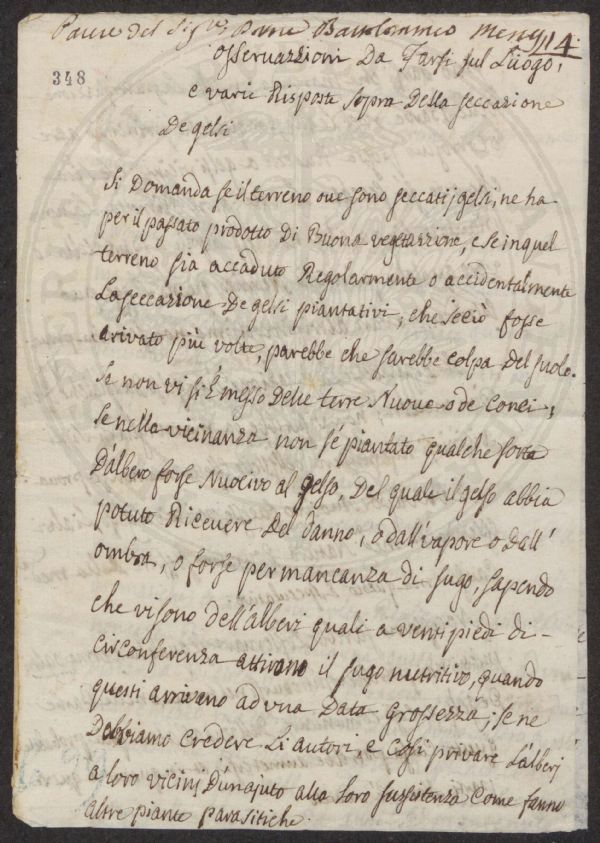 Parere del Sig.re Pietro Bartolommeo
14
348
Osservazzioni Da Farsi sul Luogo,
e varie Risposte sopra Della seccazione
De gelsi
Si Domanda se il terreno oue sono seccati j gelsi, ne ha
per il passato prodotto Di Buona vegetazzione, e se in quel
terreno sia accaduto Regolarmente o accidentalmente
La seccazione De gelsi piantativi, che se ciò fosse
arivato più volte, parebbe che sarebbe colpa Del suolo.
Se non vi si è messo Delle terre Nuove o de Conci,
se nella vicinanza non s'é piantato qualche sorta
D'albero forse Nuocivo al gelso, Del quale il gelso abbia
potuto Riceuere Del danno, o dall'vapore o Dall'
ombra, o forse per mancanza di sugo, sapendo
che vi sono dell'alberi quali a venti piedi di-
circonferenza attirano il sugo nutritivo, quando
questi arrivano ad vna Data Grossezza, se ne
Dobbiamo credere Li autori, e Cosi privare L'alberj
a loro vicinj D'un ajuto alla loro sussistenza Come fanno
altre piante parasitiche.